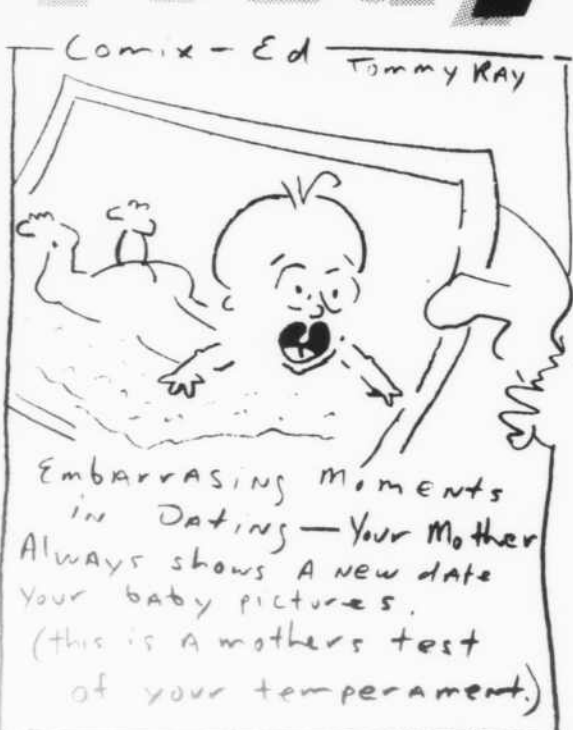 Comix - Ed Tommy RAY
EmbArrAsiNg MomENts
iN DAtiNg — Your Mother
AlwAys shows A New dAte
Your bAby pictures.
(this is A mothers test
of your temperAment.)